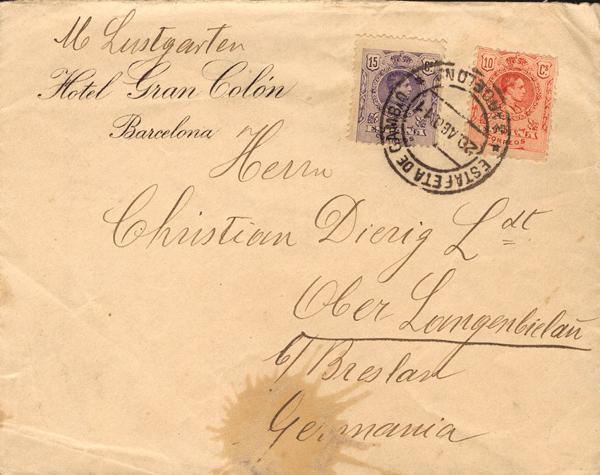 M Lustgarten
Hotel Gran Colón
Barcelona
15 Cs
10 Cs
CORREOS
ESTAFETA DE CAMBIO
BARCELONA
Herrn
Christian Dierig Ldt
Ober Langenbielau
b/ Breslau
Germania